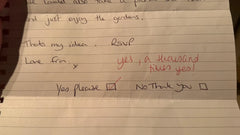 and just enjoy the gardens.
That's my idea. RSVP
Love from x
yes, a thousand
times yes!
Yes please ☑ No Thank you ☐